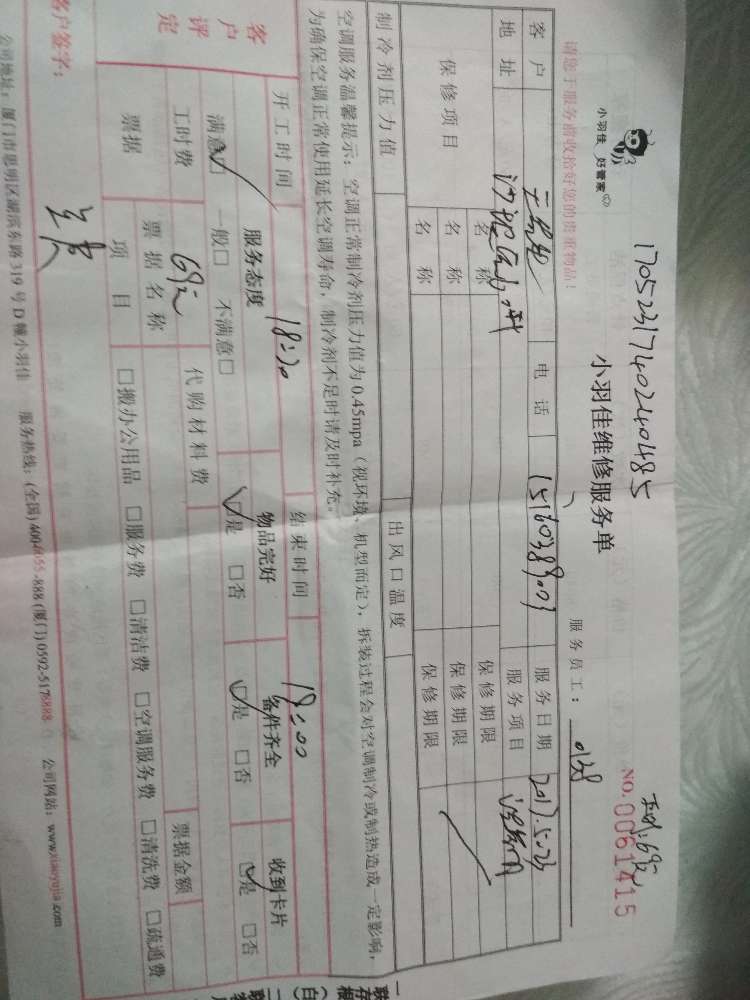 17052317402401485
小羽佳 好管家
小羽佳维修服务单
NO. 0061415
请您于服务前收拾好您的贵重物品！
服务员工：
客户 电话 服务日期 2017.5.23
地址 服务项目
保修项目 名称 保修期限
名称 保修期限
名称 保修期限
制冷剂压力值 出风口温度
空调服务温馨提示：空调正常制冷剂压力值为0.45mpa（视环境、机型而定），拆装过程会对空调制冷或制热造成一定影响，
为确保空调正常使用延长空调寿命，制冷剂不足时请及时补充。
开工时间 18:20 结束时间 19:00
客户评定 服务态度 物品完好 备件齐全 收到卡片
满意□ 一般□ 不满意□ □是 □否 □是 □否 □是 □否
工时费 69元 代购材料费
票据 票据名称 票据金额
项目 □搬办公用品 □服务费 □清洁费 □空调服务费 □清洗费 □疏通费
客户签字：
公司地址：厦门市思明区湖滨东路319号D幢小羽佳 服务热线：(全国)400-055-888 (厦门)0592-5178888 公司网站：www.xiaoyujia.com